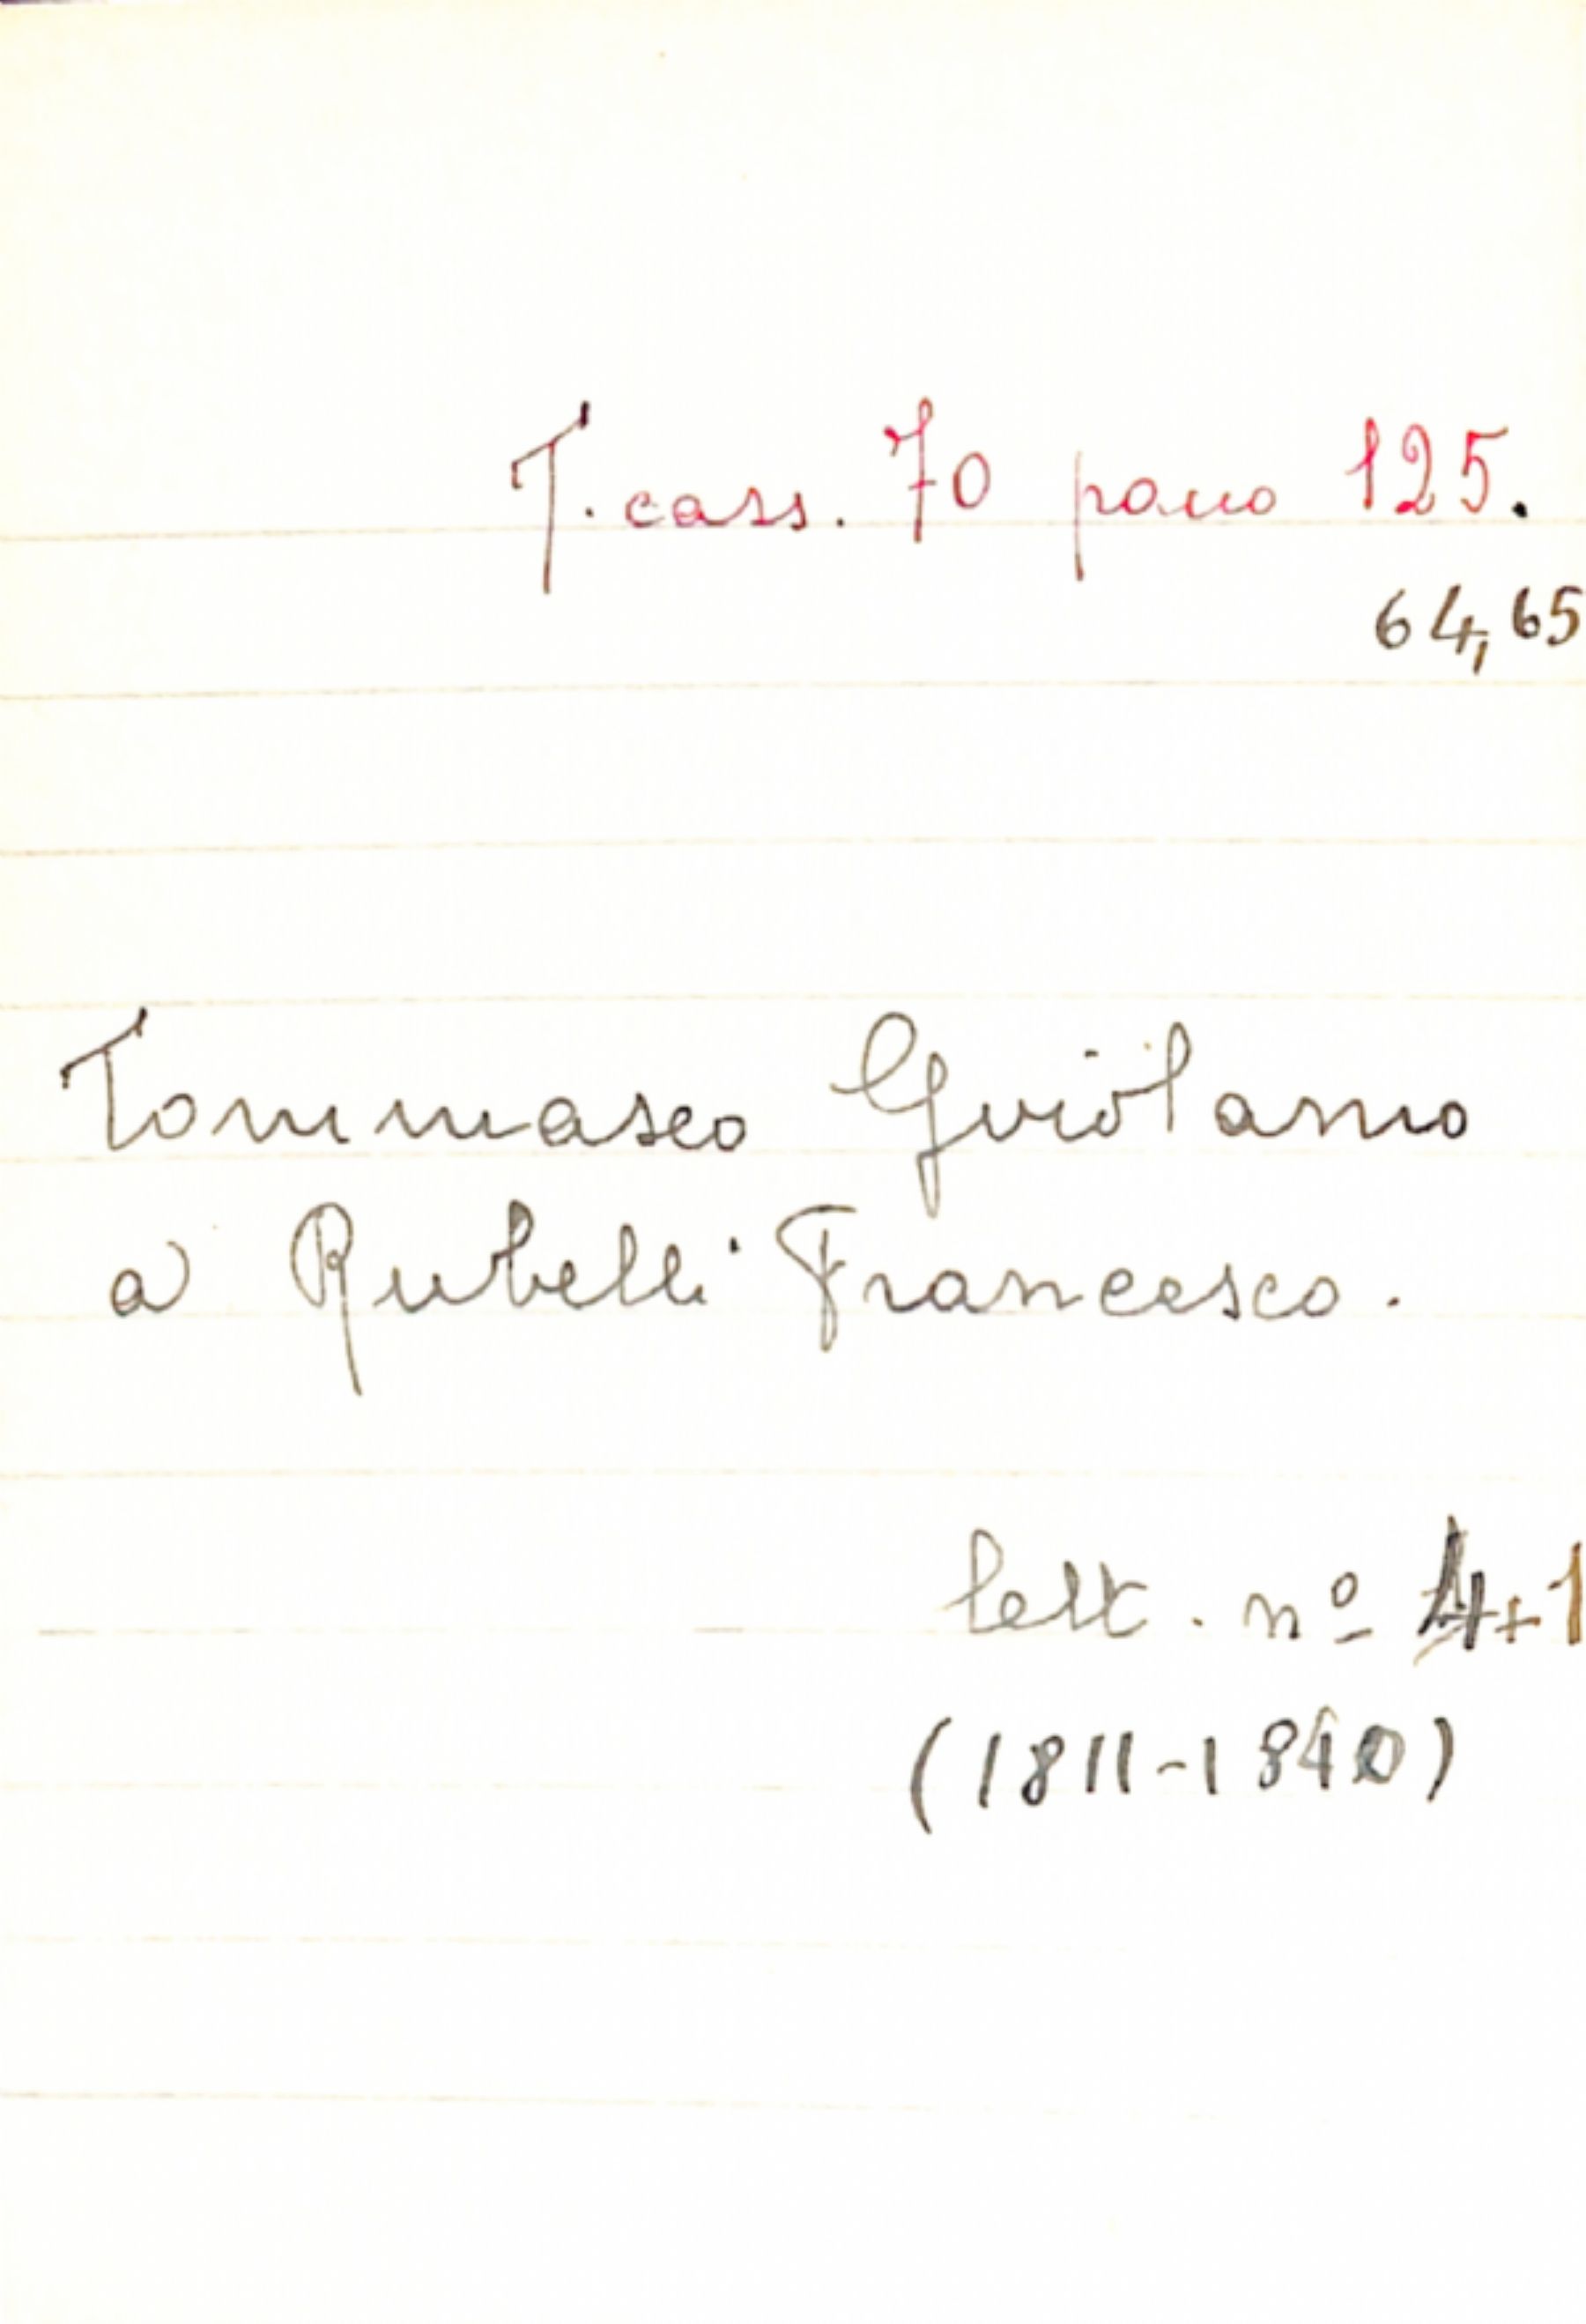 T. cass. 70 pacco 125.
64,65
Tommaseo Girolamo
a Rubelli Francesco.
lett. nº 4+1
(1811-1840)